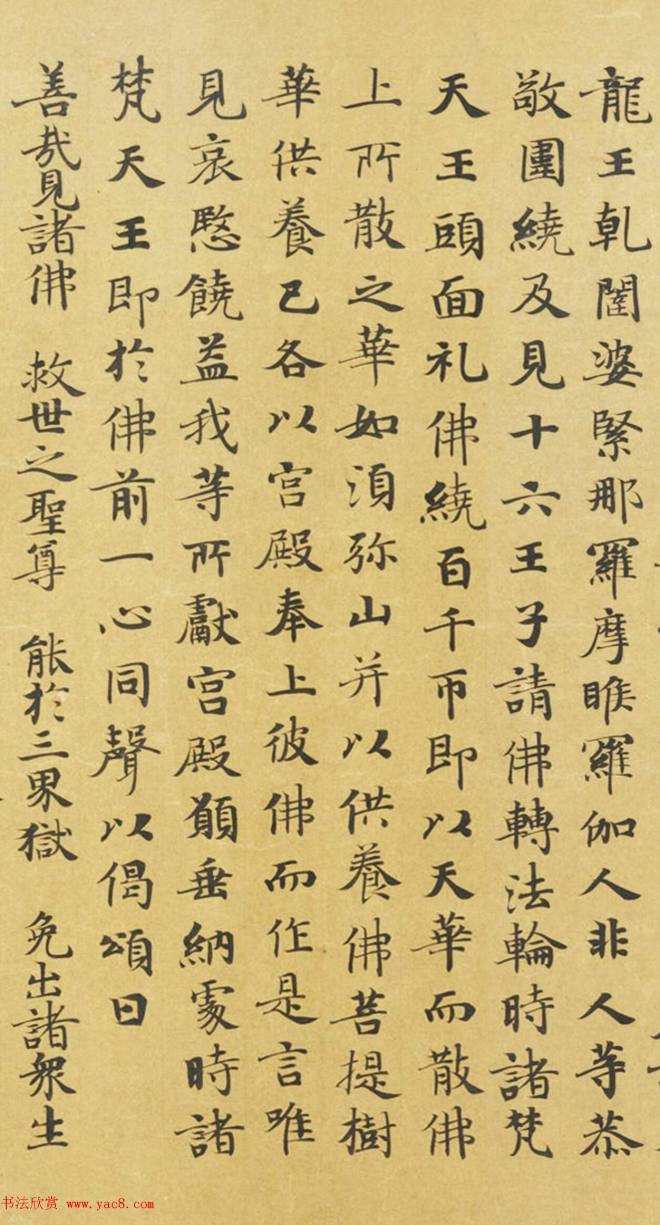 龍王乹闥婆緊那羅摩睺羅伽人非人等恭
敬圍繞及見十六王子請佛轉法輪時諸梵
天王頭面礼佛繞百千帀即以天華而散佛
上所散之華如湏弥山并以供養佛菩提樹
華供養已各以宮殿奉上彼佛而作是言唯
見哀愍饒益我等所獻宮殿願垂納處時諸
梵天王即於佛前一心同聲以偈頌曰
善哉見諸佛 救世之聖尊 能於三界獄 免出諸眾生
书法欣赏 www.yac8.com